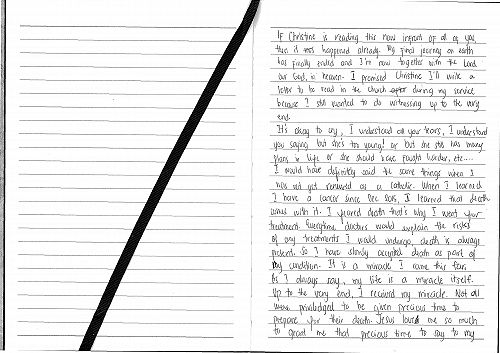 If Christine is reading this now infront of all of you,
then it has happened already. My final journey on earth
has finally ended and I'm now together with the Lord
our God, in heaven. I promised Christine I'll write a
letter to be read in the church after during my service
because I still wanted to do witnessing up to the very
end.
It's okay to cry, I understand all your tears, I understand
you saying but she's too young! or but she still has many
plans in life or she should have fought harder, etc....
I would have definitely said the same things when I
was not yet renewed as a catholic. When I learned
I have a cancer since Dec 2015, I learned that death
comes with it. I feared death that's why I went for
treatment. Everytime doctors would explain the risks
of any treatments I would undergo, death is always
present. So I have slowly accepted death as part of
my condition. It is a miracle I came this far.
As I always say, my life is a miracle itself.
Up to the very end, I received my miracle. Not all
were priviledged to be given precious time to
prepare for their death. Jesus loved me so much
to grant me that precious time to say to my